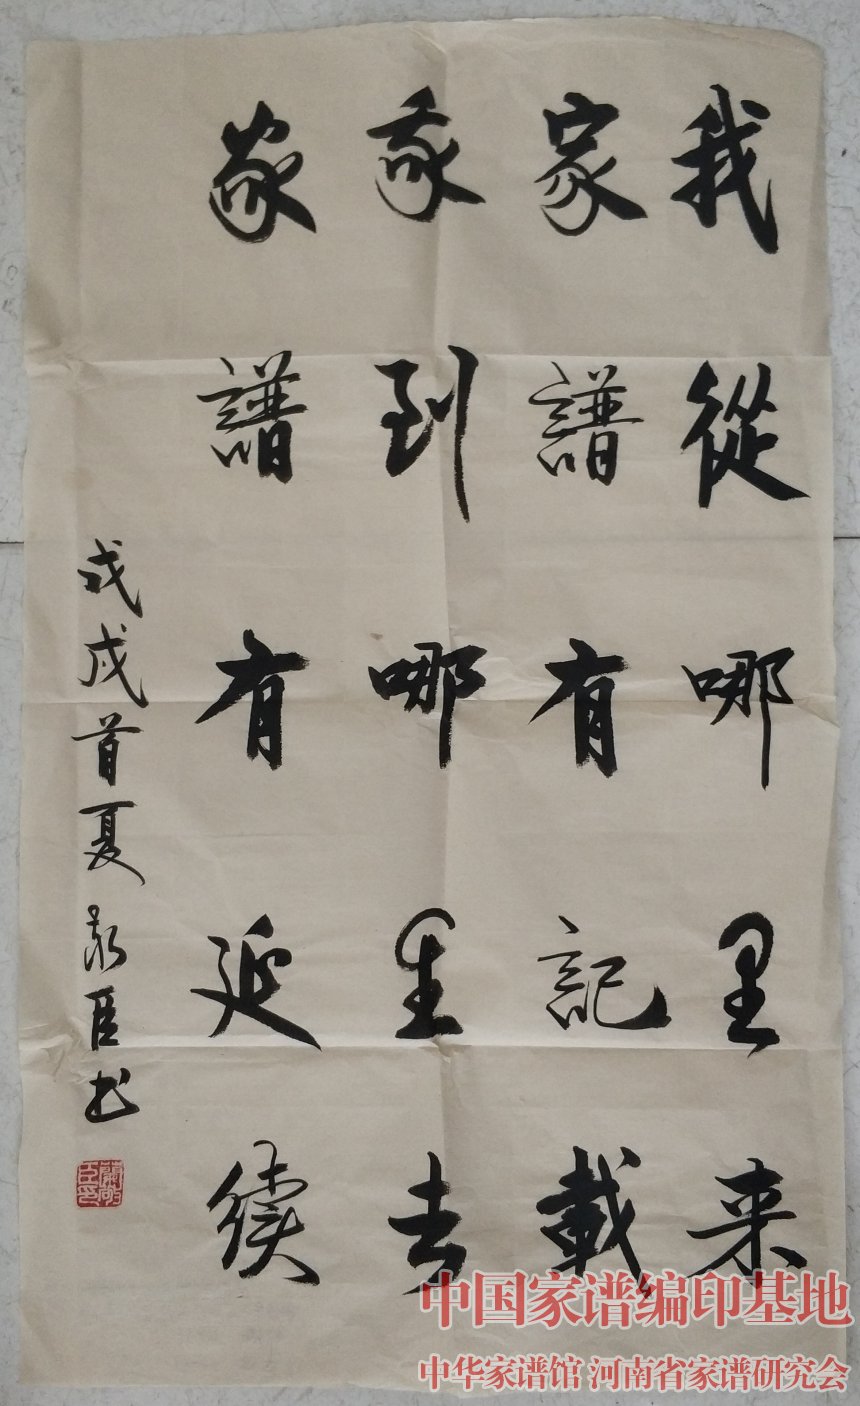 我從哪里来
家譜有記載
我到哪里去
家譜有延續
戊戌首夏敬臣书
中国家谱编印基地
中华家谱馆 河南省家谱研究会